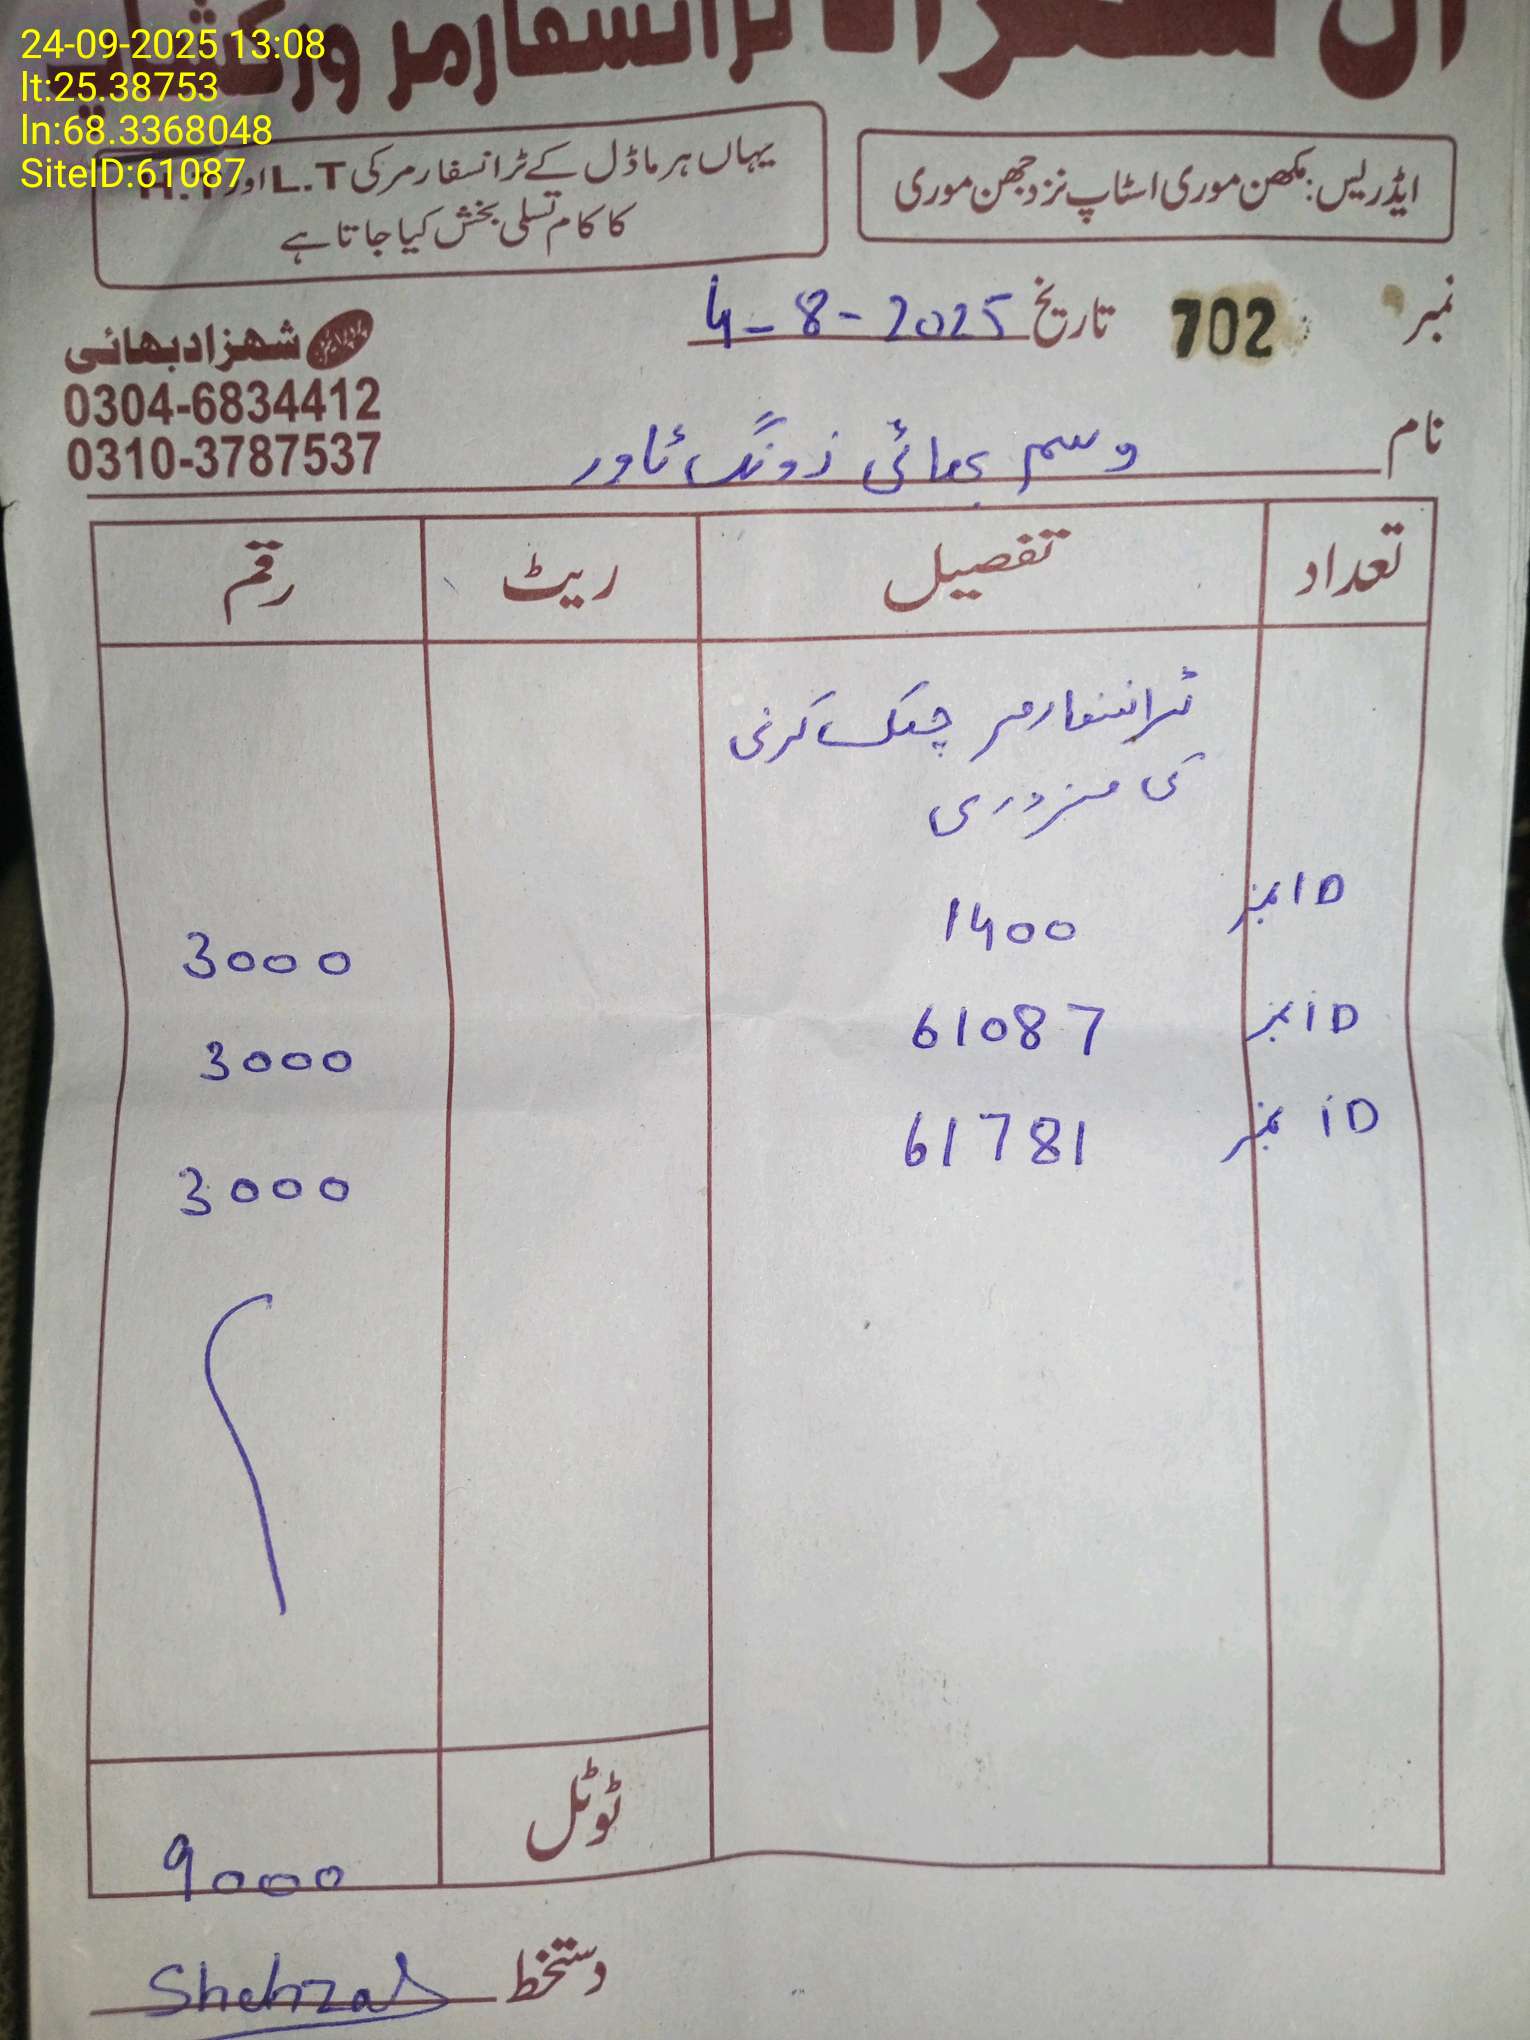 24-09-2025 13:08
lt:25.38753
ln:68.3368048
SiteID:61087
ٹرانسفارمر ورکشاپ
ایڈریس: مکھن موری اسٹاپ نزد جھن موری
یہاں ہر ماڈل کے ٹرانسفارمر کی L.T اور H.T
کا کام تسلی بخش کیا جاتا ہے
نمبر 702 تاریخ 4-8-2025
شہزاد بھائی
0304-6834412
0310-3787537
نام وسیم بھائی زونگ ٹاور
تعداد تفصیل ریٹ رقم
ٹرانسفارمر چیک کرنی
کی مزدوری
ID نمبر 1400 3000
ID نمبر 61087 3000
ID نمبر 61781 3000
ٹوٹل 9000
دستخط Shehzad